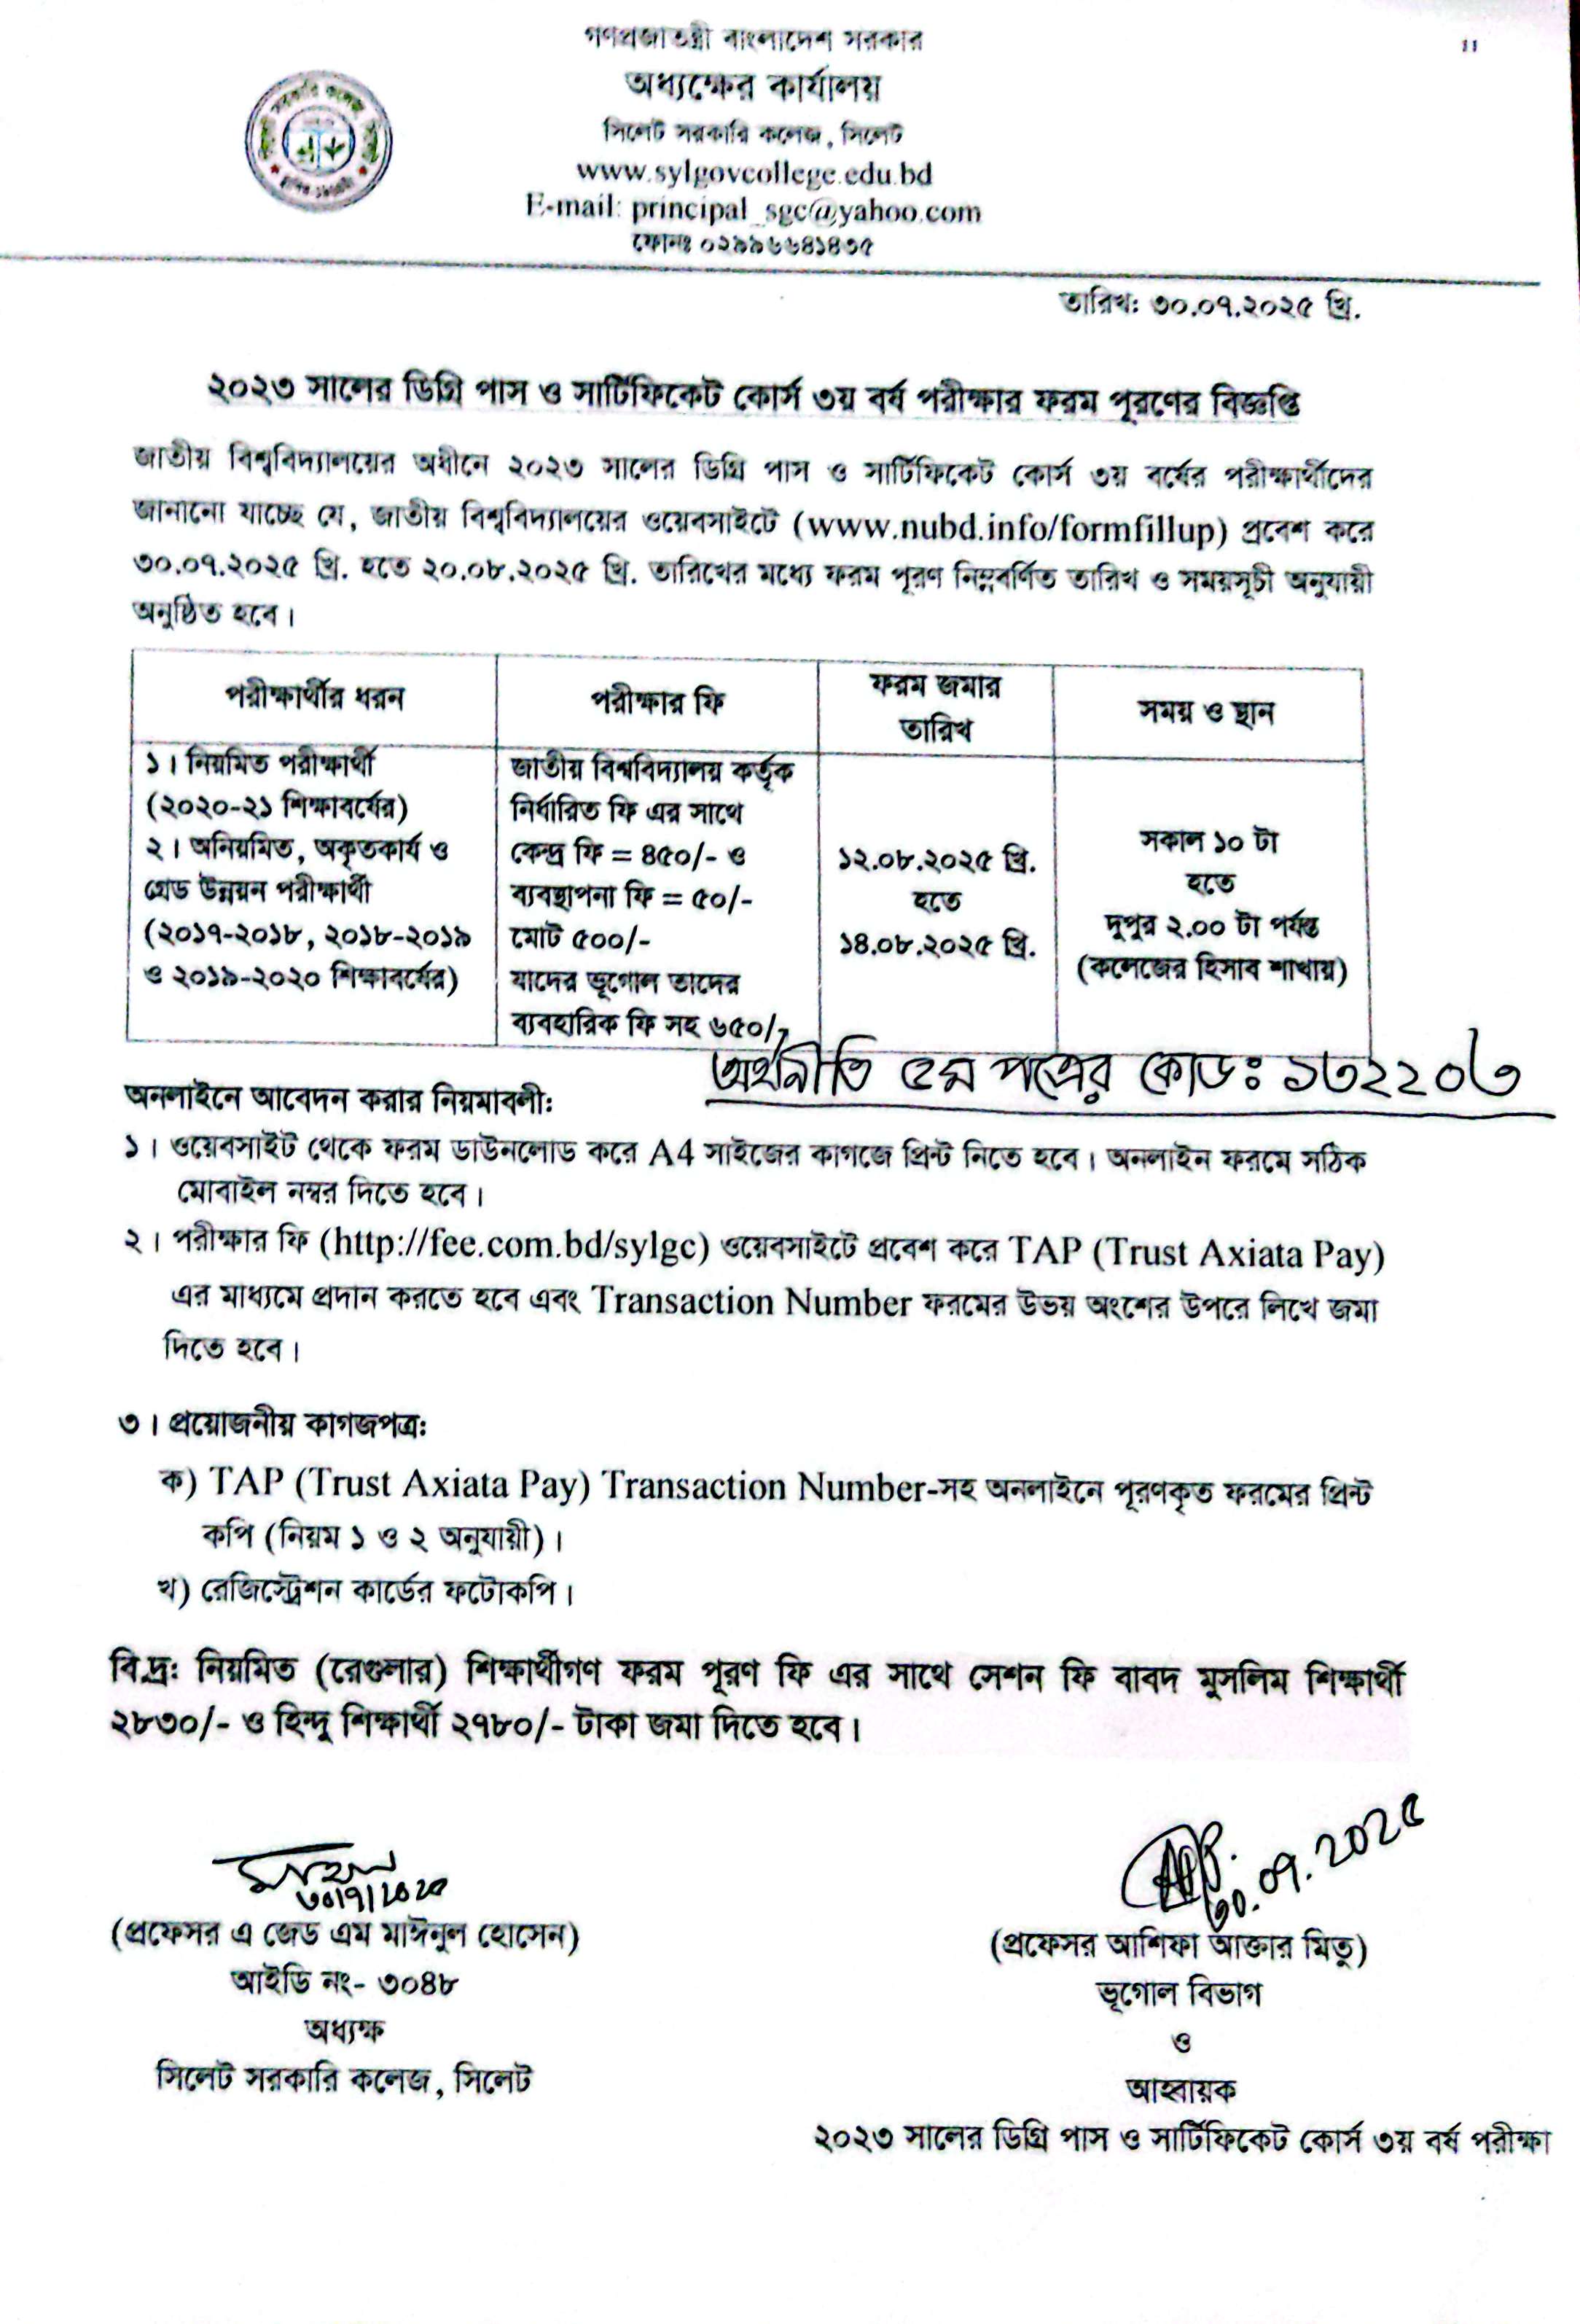 গণপ্রজাতন্ত্রী বাংলাদেশ সরকার
অধ্যক্ষের কার্যালয়
সিলেট সরকারি কলেজ, সিলেট
www.sylgovcollege.edu.bd
E-mail: principal_sgc@yahoo.com
ফোনঃ ০২৯৯৬৬৪১৪৩৫
তারিখ: ৩০.০৭.২০২৫ খ্রি.
২০২৩ সালের ডিগ্রি পাস ও সার্টিফিকেট কোর্স ৩য় বর্ষ পরীক্ষার ফরম পূরণের বিজ্ঞপ্তি
জাতীয় বিশ্ববিদ্যালয়ের অধীনে ২০২৩ সালের ডিগ্রি পাস ও সার্টিফিকেট কোর্স ৩য় বর্ষের পরীক্ষার্থীদের
জানানো যাচ্ছে যে, জাতীয় বিশ্ববিদ্যালয়ের ওয়েবসাইটে (www.nubd.info/formfillup) প্রবেশ করে
৩০.০৭.২০২৫ খ্রি. হতে ২০.০৮.২০২৫ খ্রি. তারিখের মধ্যে ফরম পূরণ নিম্নবর্ণিত তারিখ ও সময়সূচী অনুযায়ী
অনুষ্ঠিত হবে।
পরীক্ষার্থীর ধরন
পরীক্ষার ফি
ফরম জমার
তারিখ
সময় ও স্থান
১। নিয়মিত পরীক্ষার্থী
(২০২০-২১ শিক্ষাবর্ষের)
২। অনিয়মিত, অকৃতকার্য ও
গ্রেড উন্নয়ন পরীক্ষার্থী
(২০১৭-২০১৮, ২০১৮-২০১৯
ও ২০১৯-২০২০ শিক্ষাবর্ষের)
জাতীয় বিশ্ববিদ্যালয় কর্তৃক
নির্ধারিত ফি এর সাথে
কেন্দ্র ফি = ৪৫০/- ও
ব্যবস্থাপনা ফি = ৫০/-
মোট ৫০০/-
যাদের ভূগোল তাদের
ব্যবহারিক ফি সহ ৬৫০/-
১২.০৮.২০২৫ খ্রি.
হতে
১৪.০৮.২০২৫ খ্রি.
সকাল ১০ টা
হতে
দুপুর ২.০০ টা পর্যন্ত
(কলেজের হিসাব শাখায়)
অর্থনীতি ৫ম পত্রের কোড: ১৩২২০৩
অনলাইনে আবেদন করার নিয়মাবলী:
১। ওয়েবসাইট থেকে ফরম ডাউনলোড করে A4 সাইজের কাগজে প্রিন্ট নিতে হবে। অনলাইন ফরমে সঠিক
মোবাইল নম্বর দিতে হবে।
২। পরীক্ষার ফি (http://fee.com.bd/sylgc) ওয়েবসাইটে প্রবেশ করে TAP (Trust Axiata Pay)
এর মাধ্যমে প্রদান করতে হবে এবং Transaction Number ফরমের উভয় অংশের উপরে লিখে জমা
দিতে হবে।
৩। প্রয়োজনীয় কাগজপত্র:
ক) TAP (Trust Axiata Pay) Transaction Number-সহ অনলাইনে পূরণকৃত ফরমের প্রিন্ট
কপি (নিয়ম ১ ও ২ অনুযায়ী)।
খ) রেজিস্ট্রেশন কার্ডের ফটোকপি।
বি.দ্র: নিয়মিত (রেগুলার) শিক্ষার্থীগণ ফরম পূরণ ফি এর সাথে সেশন ফি বাবদ মুসলিম শিক্ষার্থী
২৮৩০/- ও হিন্দু শিক্ষার্থী ২৭৮০/- টাকা জমা দিতে হবে।
৩০/৭/২০২৫
(প্রফেসর এ জেড এম মাঈনুল হোসেন)
আইডি নং- ৩০৪৮
অধ্যক্ষ
সিলেট সরকারি কলেজ, সিলেট
৩০.০৭.২০২৫
(প্রফেসর আশিফা আক্তার মিতু)
ভূগোল বিভাগ
ও
আহ্বায়ক
২০২৩ সালের ডিগ্রি পাস ও সার্টিফিকেট কোর্স ৩য় বর্ষ পরীক্ষা